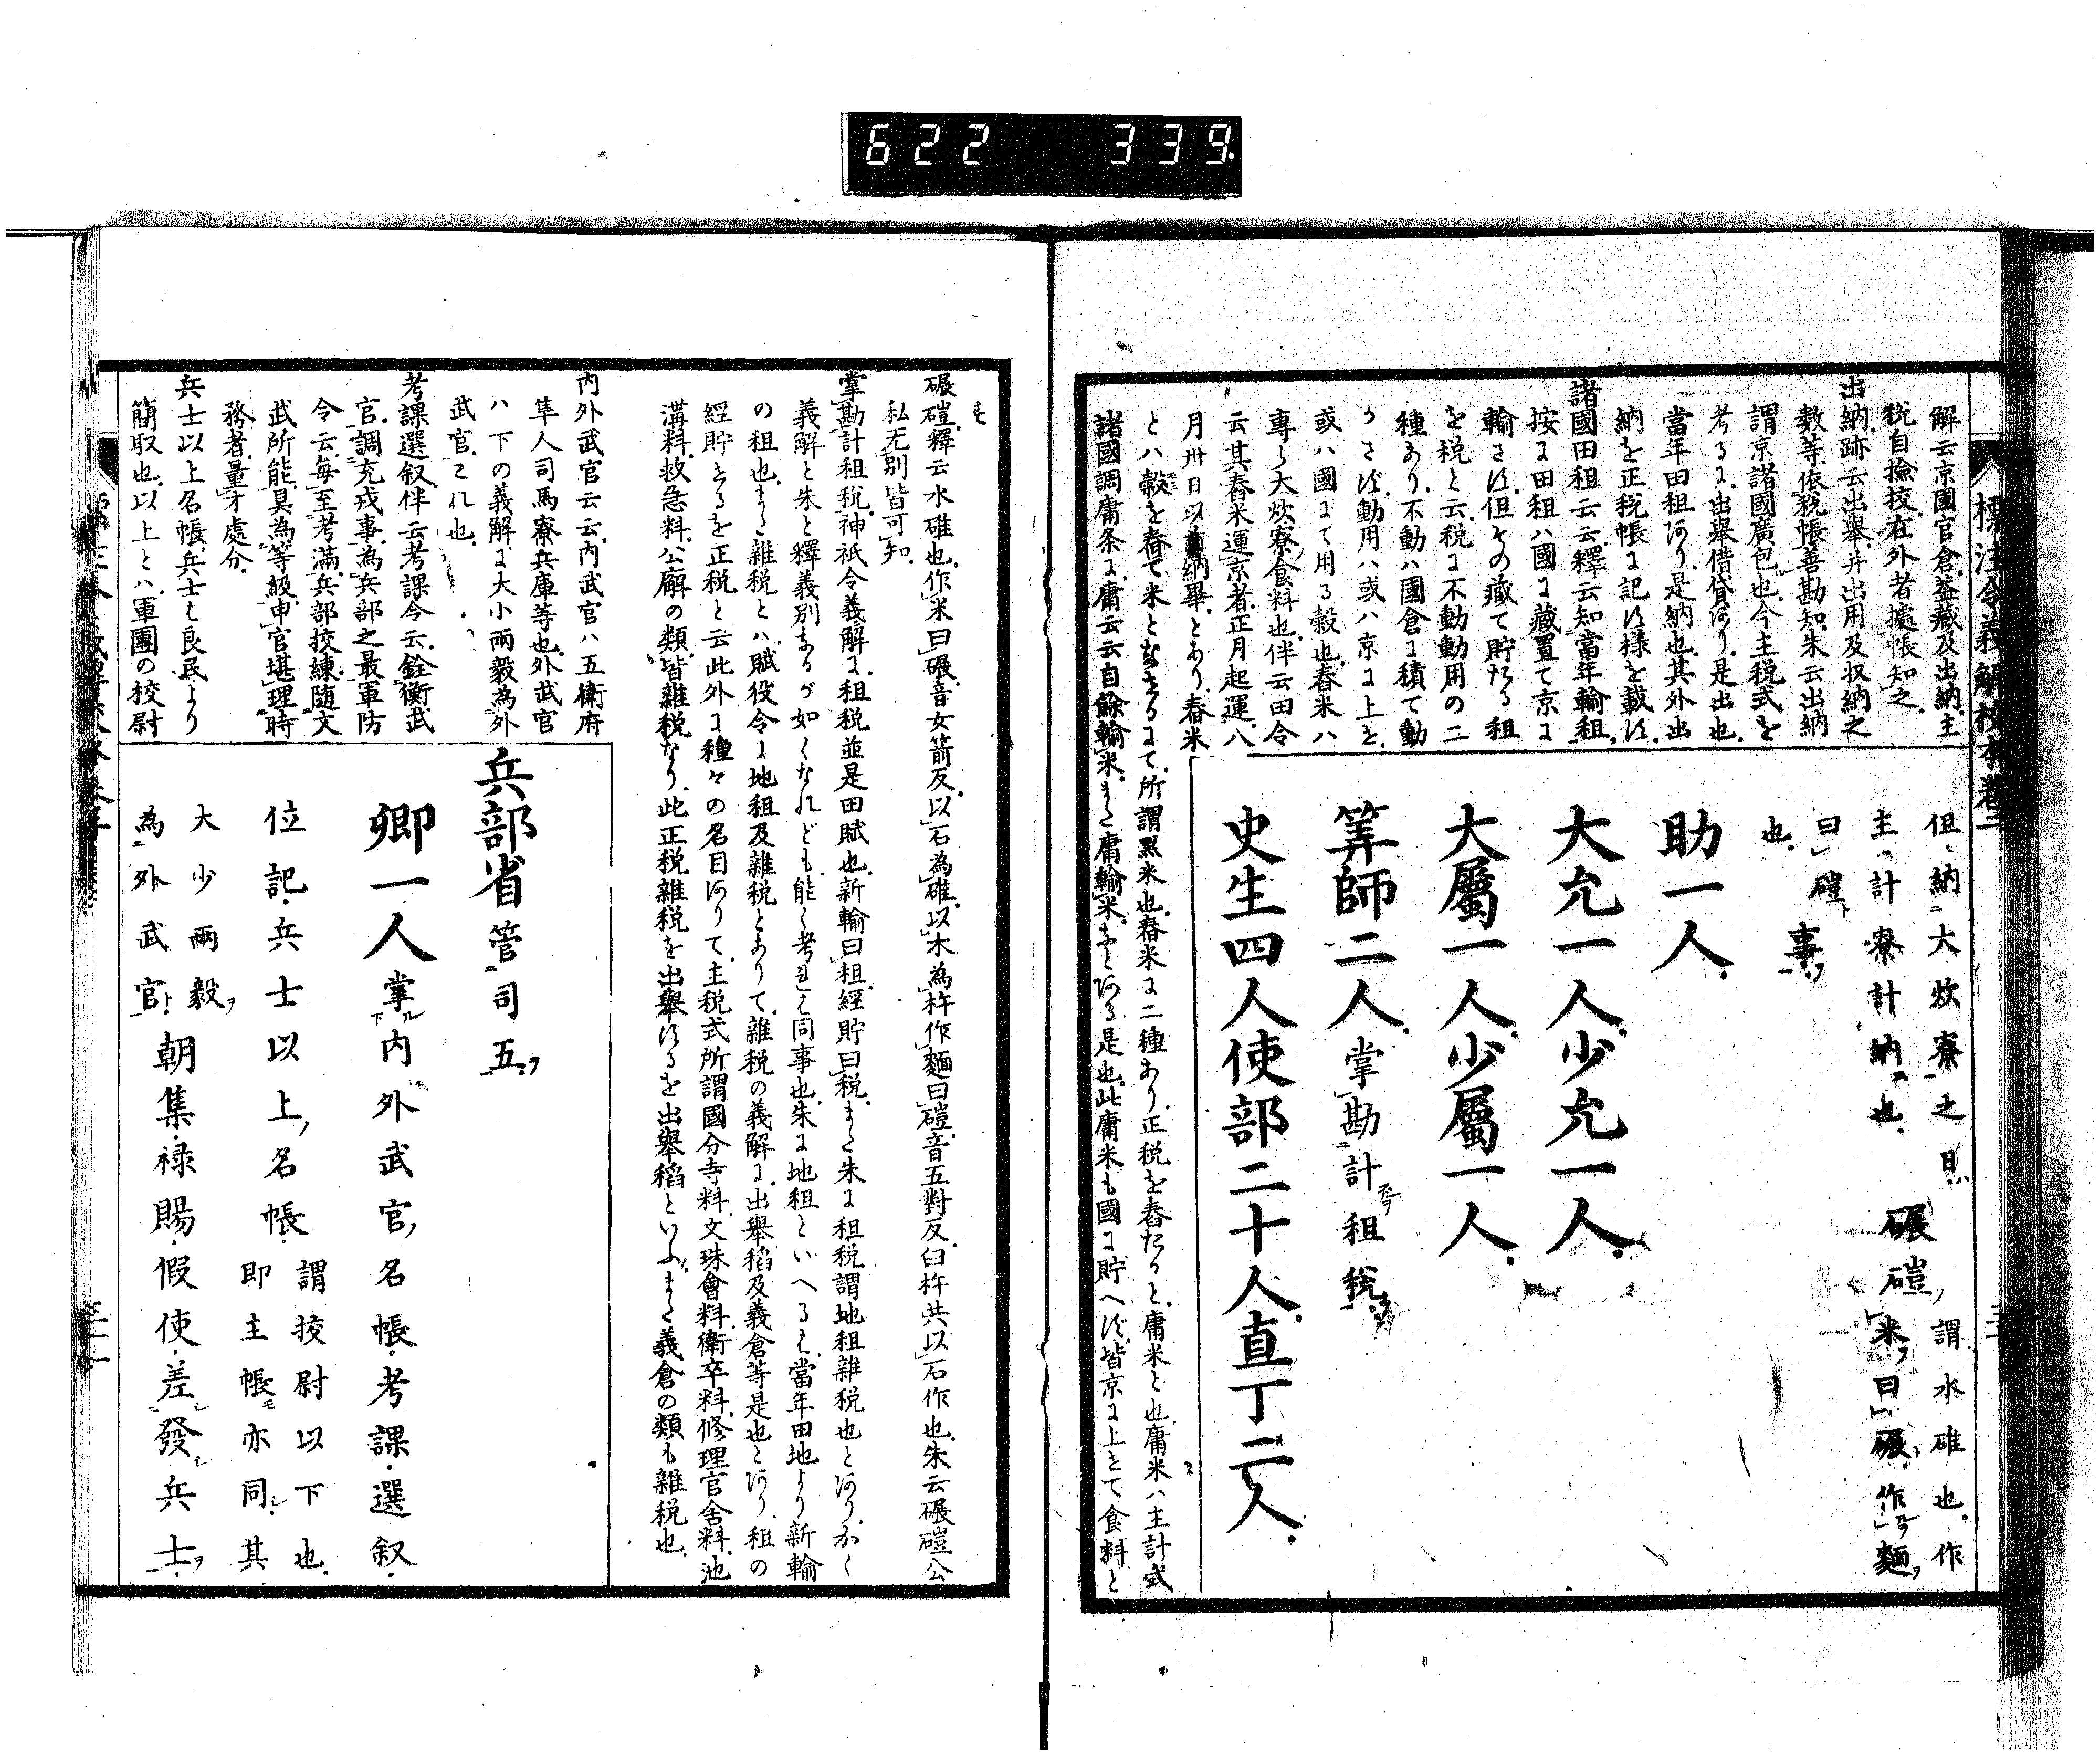 622 339
標注令義解校本卷二
解云京國官倉蓋藏及出納主
税自撿挍在外者據帳知之
出納跡云出擧并出用及収納之
數等依税帳善勘知朱云出納
謂京諸國廣包也今主税式を
考るに出擧借貸あり是出也
當年田租あり是納也其外出
納を正税帳に記す様を載す
諸國田租云云釋云知當年輸租
按に田租ハ國に藏置て京に
輸さす但その藏て貯たる租
を税と云税に不動動用の二
種あり不動ハ國倉に積て動
かさず動用ハ或ハ京に上せ
或ハ國にて用る穀也舂米ハ
專ら大炊寮食料也伴云田令
云其舂米運京者正月起運八
月卅日以前納畢とあり舂米
とハ穀を舂て米となせるにて所謂黒米也舂米に二種あり正税を舂たると庸米と也庸米ハ主計式
諸國調庸条に庸云云自餘輸米また庸輸米などある是也此庸米も國に貯へず皆京に上せて食料と
但納大炊寮之日
主計寮計納也
碾磑
謂水碓也作
米曰碾作麵
曰磑
也
事
助一人
大允一人少允一人
大屬一人少屬一人
筭師二人掌勘計租税
史生四人使部二十人直丁二人
す
碾磑釋云水碓也作米曰碾音女箭反以石為碓以木為杵作麵曰磑音五對反臼杵共以石作也朱云碾磑公
私无別皆可知
掌勘計租税神祇令義解に租税並是田賦也新輸曰租經貯曰税また朱に租税謂地租雜税也とありかく
義解と朱と釋義別なるが如くなれども能く考れは同事也朱に地租といへるは當年田地より新輸
の租也また雜税とハ賦役令に地租及雜税とありて雜税の義解に出擧稻及義倉等是也とあり租の
經貯せるを正税と云此外に種々の名目ありて主税式所謂國分寺料文珠會料衛卒料修理官舍料池
溝料救急料公廨の類皆雜税なり此正税雜税を出擧するを出擧稻といふまた義倉の類も雜税也
内外武官云云内武官ハ五衛府
隼人司馬寮兵庫等也外武官
ハ下の義解に大小兩毅為外
武官これ也
考課選叙伴云考課令云銓衡武
官調充戎事為兵部之最軍防
令云毎至考滿兵部挍練随文
武所能具為等級申官堪理時
務者量才處分
兵士以上名帳兵士は良民より
簡取也以上とハ軍團の校尉
兵部省管司五
卿一人掌内外武官名帳考課選叙
位記兵士以上名帳謂挍尉以下也
即主帳亦同其
大少兩毅
為外武官
朝集禄賜假使差發兵士